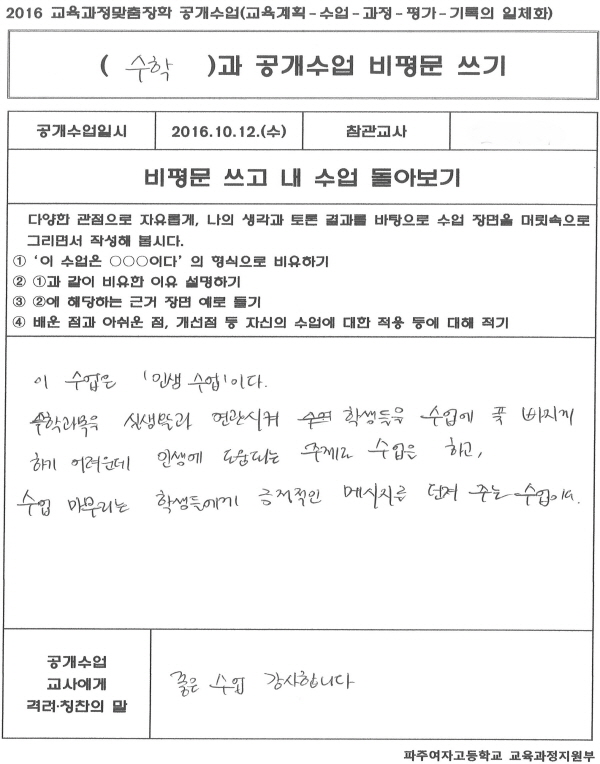 2016 교육과정맞춤장학 공개수업(교육계획-수업-과정-평가-기록의 일체화)
( 수학 )과 공개수업 비평문 쓰기
공개수업일시 2016.10.12.(수) 참관교사
비평문 쓰고 내 수업 돌아보기
다양한 관점으로 자유롭게, 나의 생각과 토론 결과를 바탕으로 수업 장면을 머릿속으로
그리면서 작성해 봅시다.
① '이 수업은 ○○○이다' 의 형식으로 비유하기
② ①과 같이 비유한 이유 설명하기
③ ②에 해당하는 근거 장면 예로 들기
④ 배운 점과 아쉬운 점, 개선점 등 자신의 수업에 대한 적용 등에 대해 적기
이 수업은 '인생 수업'이다.
수학과목을 실생활과 연관시켜 학생들을 수업에 푹 빠지게
하기 어려운데 인생에 도움되는 주제로 수업을 하고,
수업 마무리는 학생들에게 긍정적인 메시지를 던져 주는 수업이다.
공개수업
교사에게
격려·칭찬의 말
좋은 수업 감사합니다
파주여자고등학교 교육과정지원부